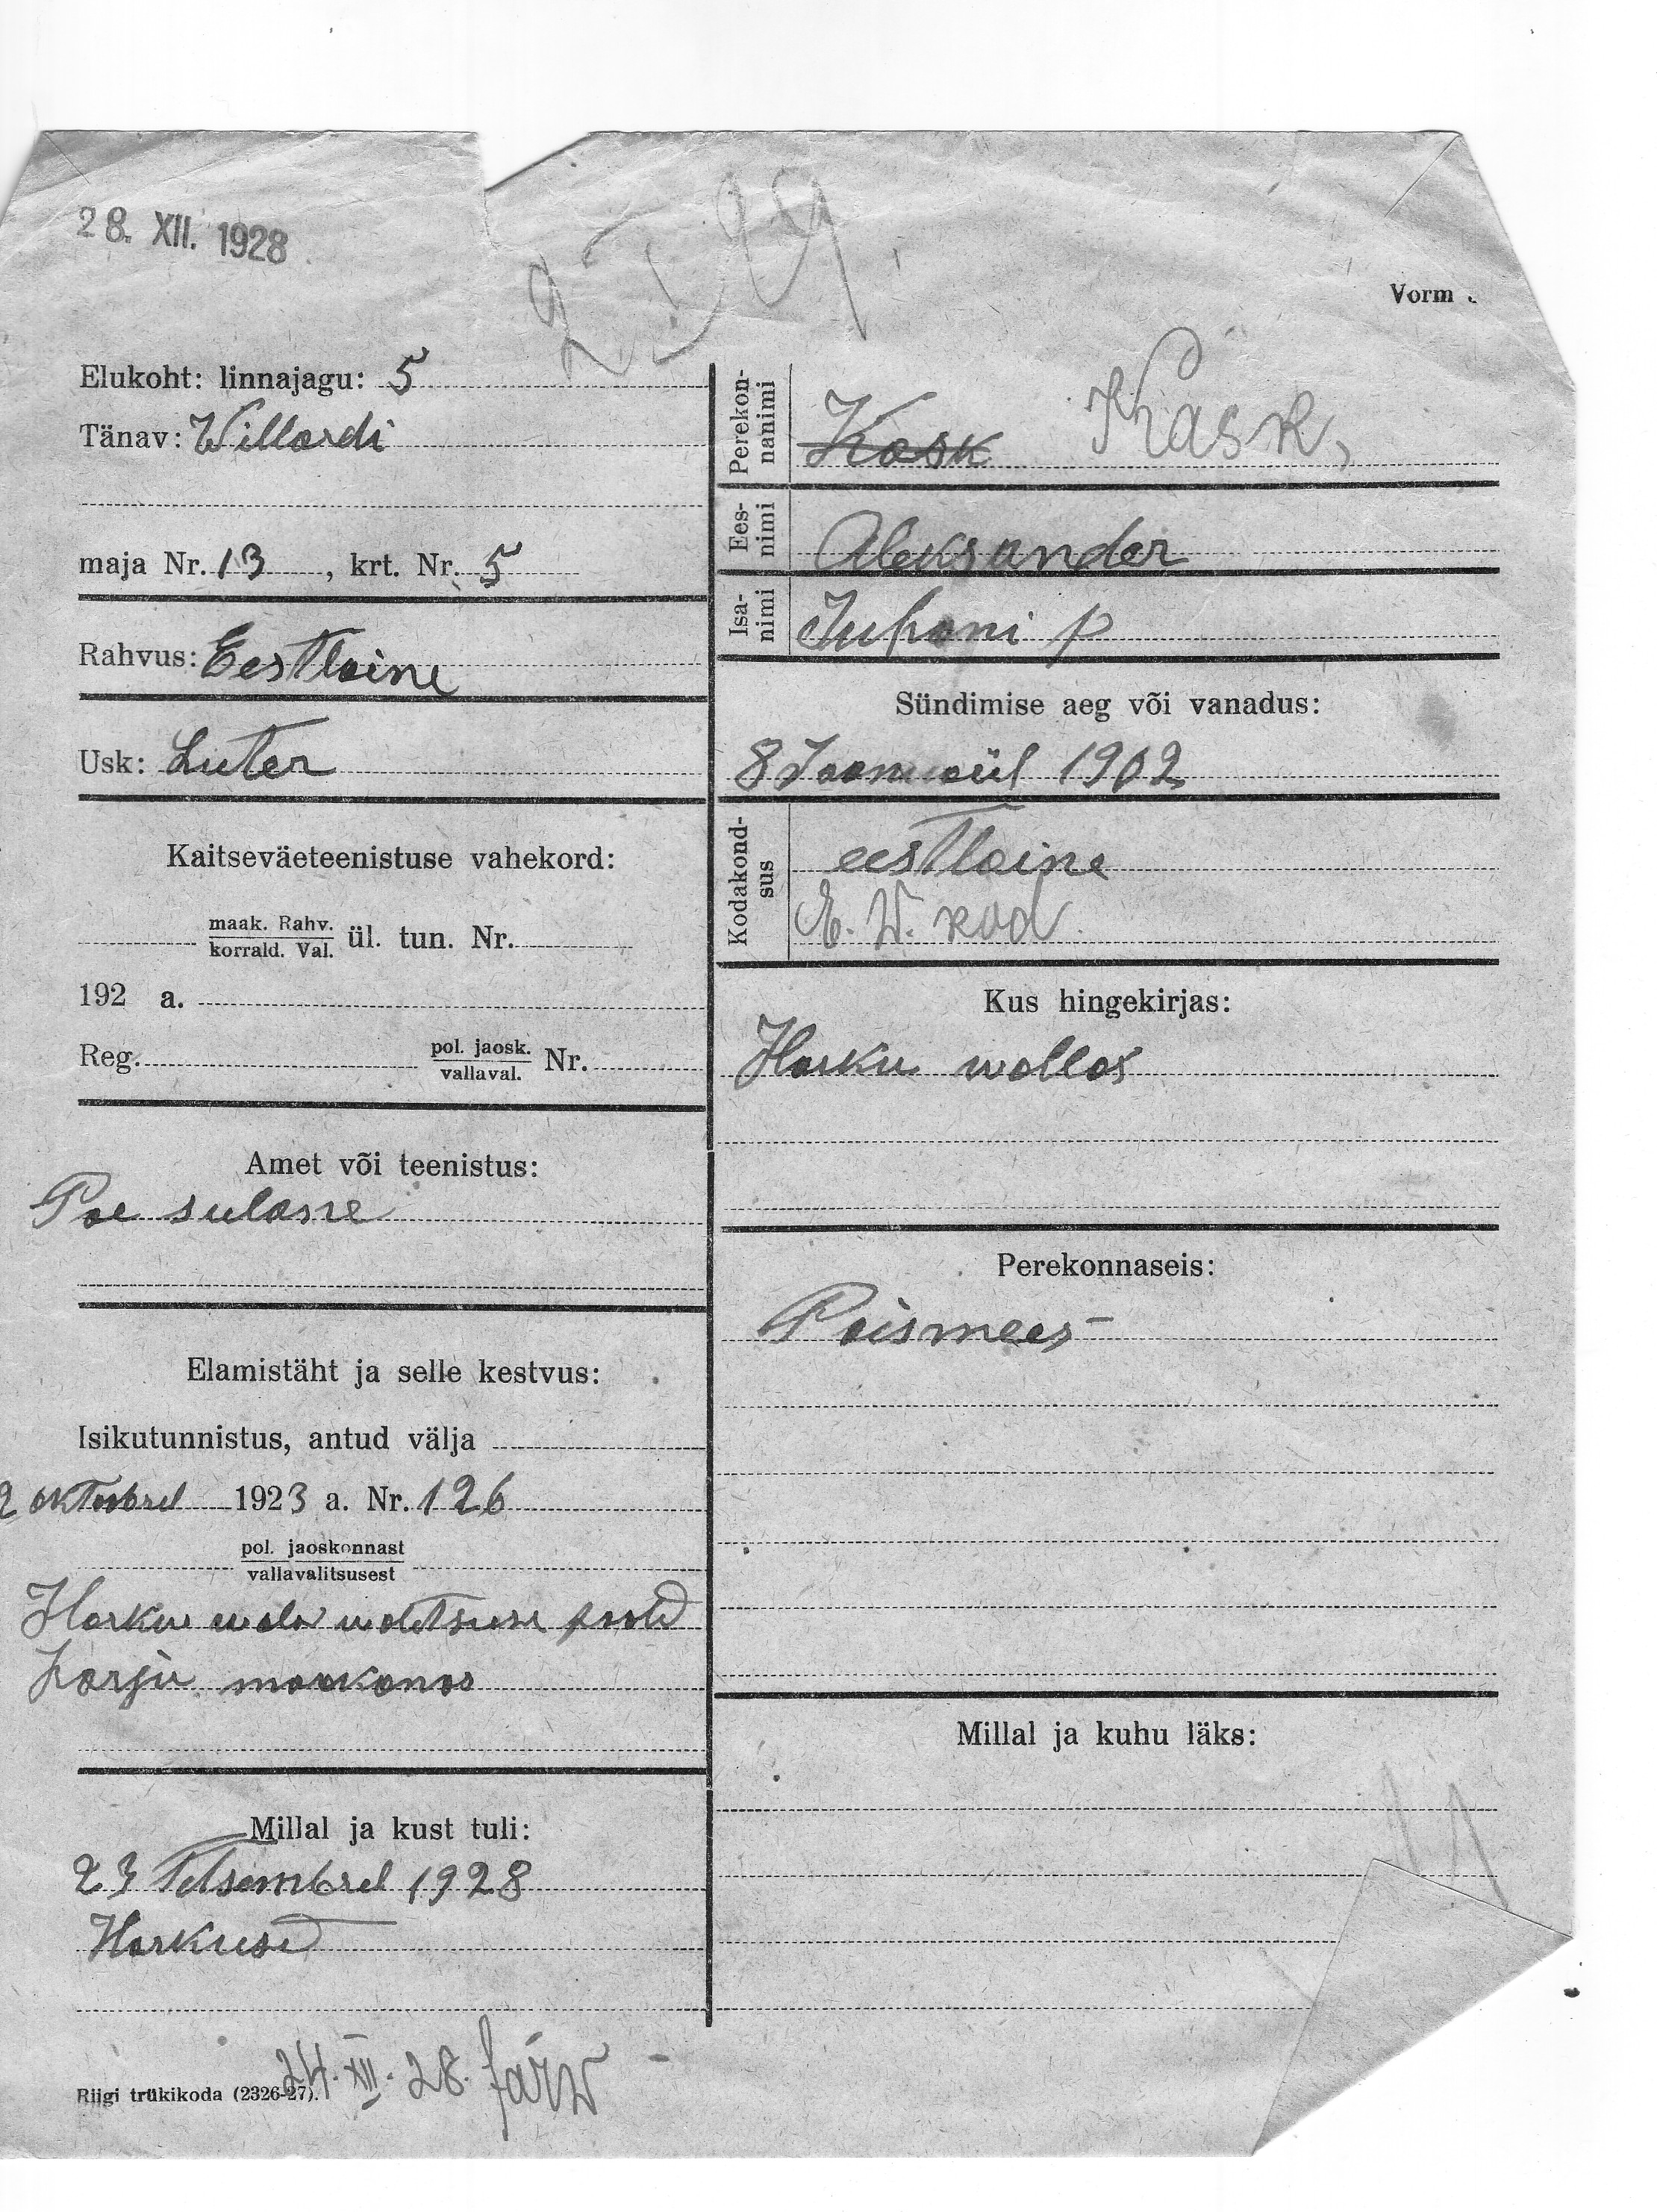 28. XII. 1928
Vorm
Elukoht: linnajagu: 5
Tänav: Willardi
maja Nr. 13, krt. Nr. 5
Rahvus: Eestlaine
Usk: Luter
Kaitseväeteenistuse vahekord:
maak. Rahv.
korrald. Val. ül. tun. Nr.
192 a.
Reg. pol. jaosk.
vallaval. Nr.
Amet või teenistus:
Poe sulane
Elamistäht ja selle kestvus:
Isikutunnistus, antud välja
2 oktoobrel 1923 a. Nr. 126
pol. jaoskonnast
vallavalitsusest
Harku wala walitsuse poold
harju maakonas
Millal ja kust tuli:
23 Tetsembrel 1928
Harkusd
24. XII. 28.
Riigi trükikoda (2326-27).
Perekonnanimi Kask Kask,
Eesnimi Aleksander
Isanimi Juhani p
Sündimise aeg või vanadus:
8 Jaanuaril 1902
Kodakondsus eestlaine
E. W. kod.
Kus hingekirjas:
Harku wallas
Perekonnaseis:
Poismees
Millal ja kuhu läks: